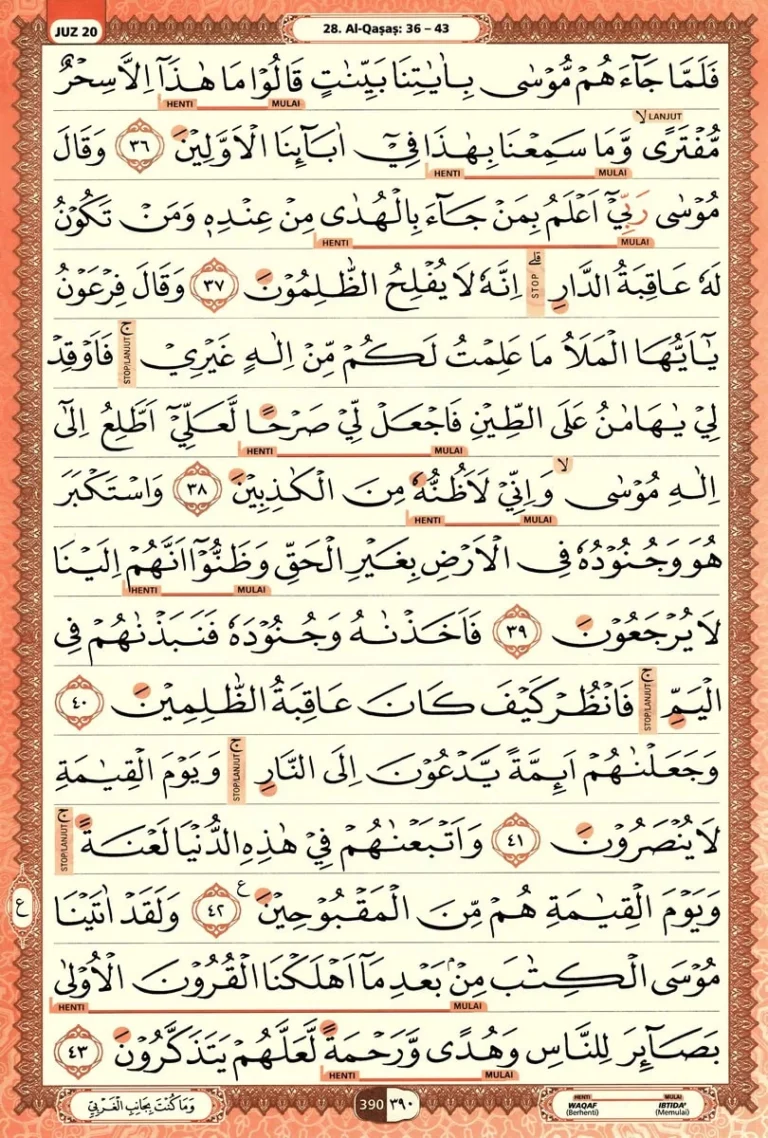 JUZ 20
28. Al-Qaṣaṣ: 36 – 43
فَلَمَّا جَاۤءَهُمْ مُّوْسٰى بِاٰيٰتِنَا بَيِّنٰتٍ قَالُوْا مَا هٰذَآ اِلَّا سِحْرٌ
HENTI MULAI
لا LANJUT
مُّفْتَرًى وَّمَا سَمِعْنَا بِهٰذَا فِيْٓ اٰبَاۤىِٕنَا الْاَوَّلِيْنَ ٣٦ وَقَالَ
HENTI MULAI
مُوْسٰى رَبِّيْٓ اَعْلَمُ بِمَنْ جَاۤءَ بِالْهُدٰى مِنْ عِنْدِهٖ وَمَنْ تَكُوْنُ
HENTI MULAI
لَهٗ عَاقِبَةُ الدَّارِ ۗ STOP اِنَّهٗ لَا يُفْلِحُ الظّٰلِمُوْنَ ٣٧ وَقَالَ فِرْعَوْنُ
يٰٓاَيُّهَا الْمَلَاُ مَا عَلِمْتُ لَكُمْ مِّنْ اِلٰهٍ غَيْرِيْ ۚ STOP/LANJUT فَاَوْقِدْ
لِيْ يٰهَامٰنُ عَلَى الطِّيْنِ فَاجْعَلْ لِّيْ صَرْحًا لَّعَلِّيْٓ اَطَّلِعُ اِلٰٓى
HENTI MULAI
اِلٰهِ مُوْسٰى ۙ وَاِنِّيْ لَاَظُنُّهٗ مِنَ الْكٰذِبِيْنَ ٣٨ وَاسْتَكْبَرَ
HENTI MULAI
هُوَ وَجُنُوْدُهٗ فِى الْاَرْضِ بِغَيْرِ الْحَقِّ وَظَنُّوْٓا اَنَّهُمْ اِلَيْنَا
HENTI MULAI
لَا يُرْجَعُوْنَ ٣٩ فَاَخَذْنٰهُ وَجُنُوْدَهٗ فَنَبَذْنٰهُمْ فِى
الْيَمِّ ۚ STOP/LANJUT فَانْظُرْ كَيْفَ كَانَ عَاقِبَةُ الظّٰلِمِيْنَ ٤٠
وَجَعَلْنٰهُمْ اَىِٕمَّةً يَّدْعُوْنَ اِلَى النَّارِ ۚ STOP/LANJUT وَيَوْمَ الْقِيٰمَةِ
لَا يُنْصَرُوْنَ ٤١ وَاَتْبَعْنٰهُمْ فِيْ هٰذِهِ الدُّنْيَا لَعْنَةً ۚ STOP/LANJUT
وَيَوْمَ الْقِيٰمَةِ هُمْ مِّنَ الْمَقْبُوْحِيْنَ ع ٤٢ وَلَقَدْ اٰتَيْنَا
ع
مُوْسَى الْكِتٰبَ مِنْۢ بَعْدِ مَآ اَهْلَكْنَا الْقُرُوْنَ الْاُوْلٰى
HENTI MULAI
بَصَاۤىِٕرَ لِلنَّاسِ وَهُدًى وَّرَحْمَةً لَّعَلَّهُمْ يَتَذَكَّرُوْنَ ٤٣
HENTI MULAI
وَمَا كُنْتَ بِجَانِبِ الْغَرْبِيِّ
390 ٣٩٠
HENTI MULAI
WAQAF IBTIDA'
(Berhenti) (Memulai)